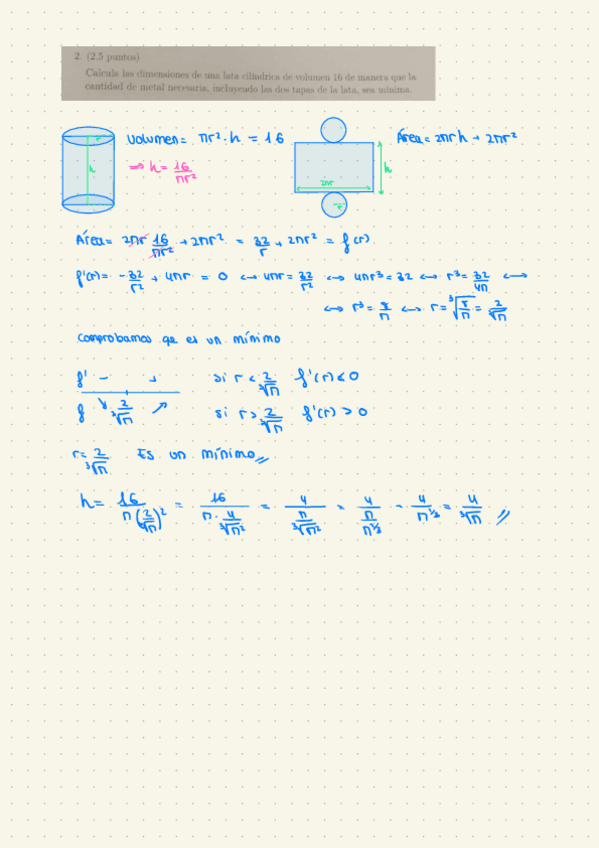 2. (2.5 puntos)
Calcula las dimensiones de una lata cilíndrica de volumen 16 de manera que la
cantidad de metal necesaria, incluyendo las dos tapas de la lata, sea mínima.
r
h
Volumen = πr² · h = 16
⇒ h = 16/πr²
2πr
h
r
Área = 2πrh + 2πr²
Área = 2πr 16/πr² + 2πr² = 32/r + 2πr² = f(r)
f'(r) = -32/r² + 4πr = 0 ↔ 4πr = 32/r² ↔ 4πr³ = 32 ↔ r³ = 32/4π ↔
↔ r³ = 8/π ↔ r = ∛(8/π) = 2/∛π
Comprobamos que es un mínimo
f' - + si r < 2/∛π f'(r) < 0
f ↘ 2/∛π ↗ si r > 2/∛π f'(r) > 0
r = 2/∛π Es un mínimo //
h = 16/(π(2/∛π)²) = 16/(π · 4/∛π²) = 4/(π/∛π²) = 4/(π/π^2/3) = 4/π^1/3 = 4/∛π //